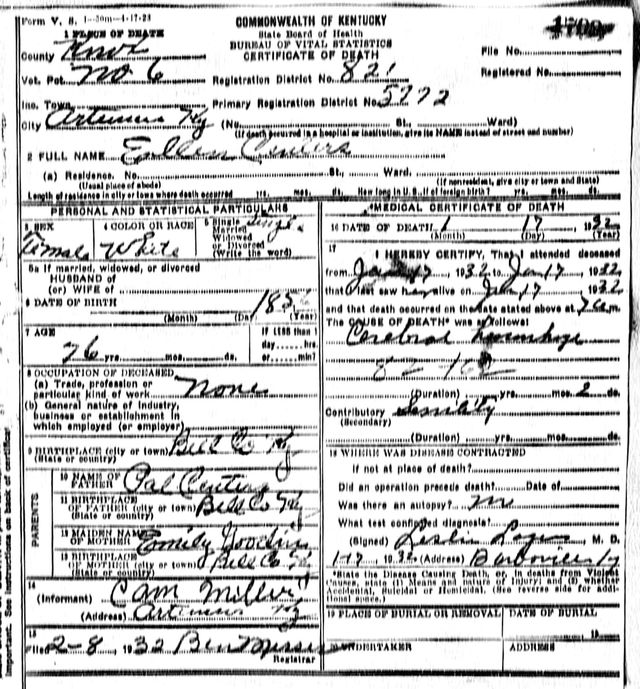 Form V. S. 1-50m-4-17-23
COMMONWEALTH OF KENTUCKY
State Board of Health
BUREAU OF VITAL STATISTICS
CERTIFICATE OF DEATH
1 PLACE OF DEATH
County Knox
File No.
Vot. Pct. No 6
Registration District No. 821
Registered No.
Inc. Town
Primary Registration District No. 5772
City Artemus Ky (No. St., Ward)
(If death occurred in a hospital or institution, give its NAME instead of street and number)
2 FULL NAME Centers
(a) Residence. No. St., Ward.
(Usual place of abode) (If nonresident, give city or town and State)
Length of residence in city or town where death occurred yrs. mos. ds. How long in U. S., if of foreign birth? yrs. mos. ds.
PERSONAL AND STATISTICAL PARTICULARS
3 SEX
Female
4 COLOR OR RACE
White
5 Single Single
Married
Widowed
or Divorced
(Write the word)
5a If married, widowed, or divorced
HUSBAND of
(or) WIFE of
6 DATE OF BIRTH 185
(Month) (Day) (Year)
7 AGE
76 yrs. mos. ds.
If LESS than 1
day hrs.
or min?
8 OCCUPATION OF DECEASED
(a) Trade, profession or
particular kind of work None
(b) General nature of industry,
business or establishment in
which employed (or employer)
9 BIRTHPLACE (city or town) Bell Co Ky
(State or country)
PARENTS
10 NAME OF
FATHER Pal Centers
11 BIRTHPLACE
OF FATHER (city or town) Bell Co Ky
(State or country)
12 MAIDEN NAME
OF MOTHER Emily Goodin
13 BIRTHPLACE
OF MOTHER (city or town) Bell Co Ky
(State or country)
14
(Informant) Cam
(Address) Artemus Ky
15
Filed 2-8, 1932 Ben Messer
Registrar
MEDICAL CERTIFICATE OF DEATH
16 DATE OF DEATH 1 17 1932
(Month) (Day) (Year)
17
I HEREBY CERTIFY, That I attended deceased
from Jan 17 1932 to Jan 17 1932
that I last saw her alive on Jan 17 1932
and that death occurred on the date stated above at 7 a.m.
The CAUSE OF DEATH* was as follows:
Cerebral
82-162
(Duration) yrs. mos. 2 ds.
Contributory Senility
(Secondary)
(Duration) yrs. mos. ds.
18 WHERE WAS DISEASE CONTRACTED
If not at place of death?
Did an operation precede death? Date of
Was there an autopsy? no
What test confirmed diagnosis?
(Signed) Leslie Logan, M. D.
1-17, 1932 (Address) Barbourville Ky
*State the Disease Causing Death, or, in deaths from Violent
Causes, state (1) Means and nature of Injury; and (2) whether
Accidental, Suicidal or Homicidal. (See reverse side for addi-
tional space.)
19 PLACE OF BURIAL OR REMOVAL
DATE OF BURIAL
19
20 UNDERTAKER
ADDRESS